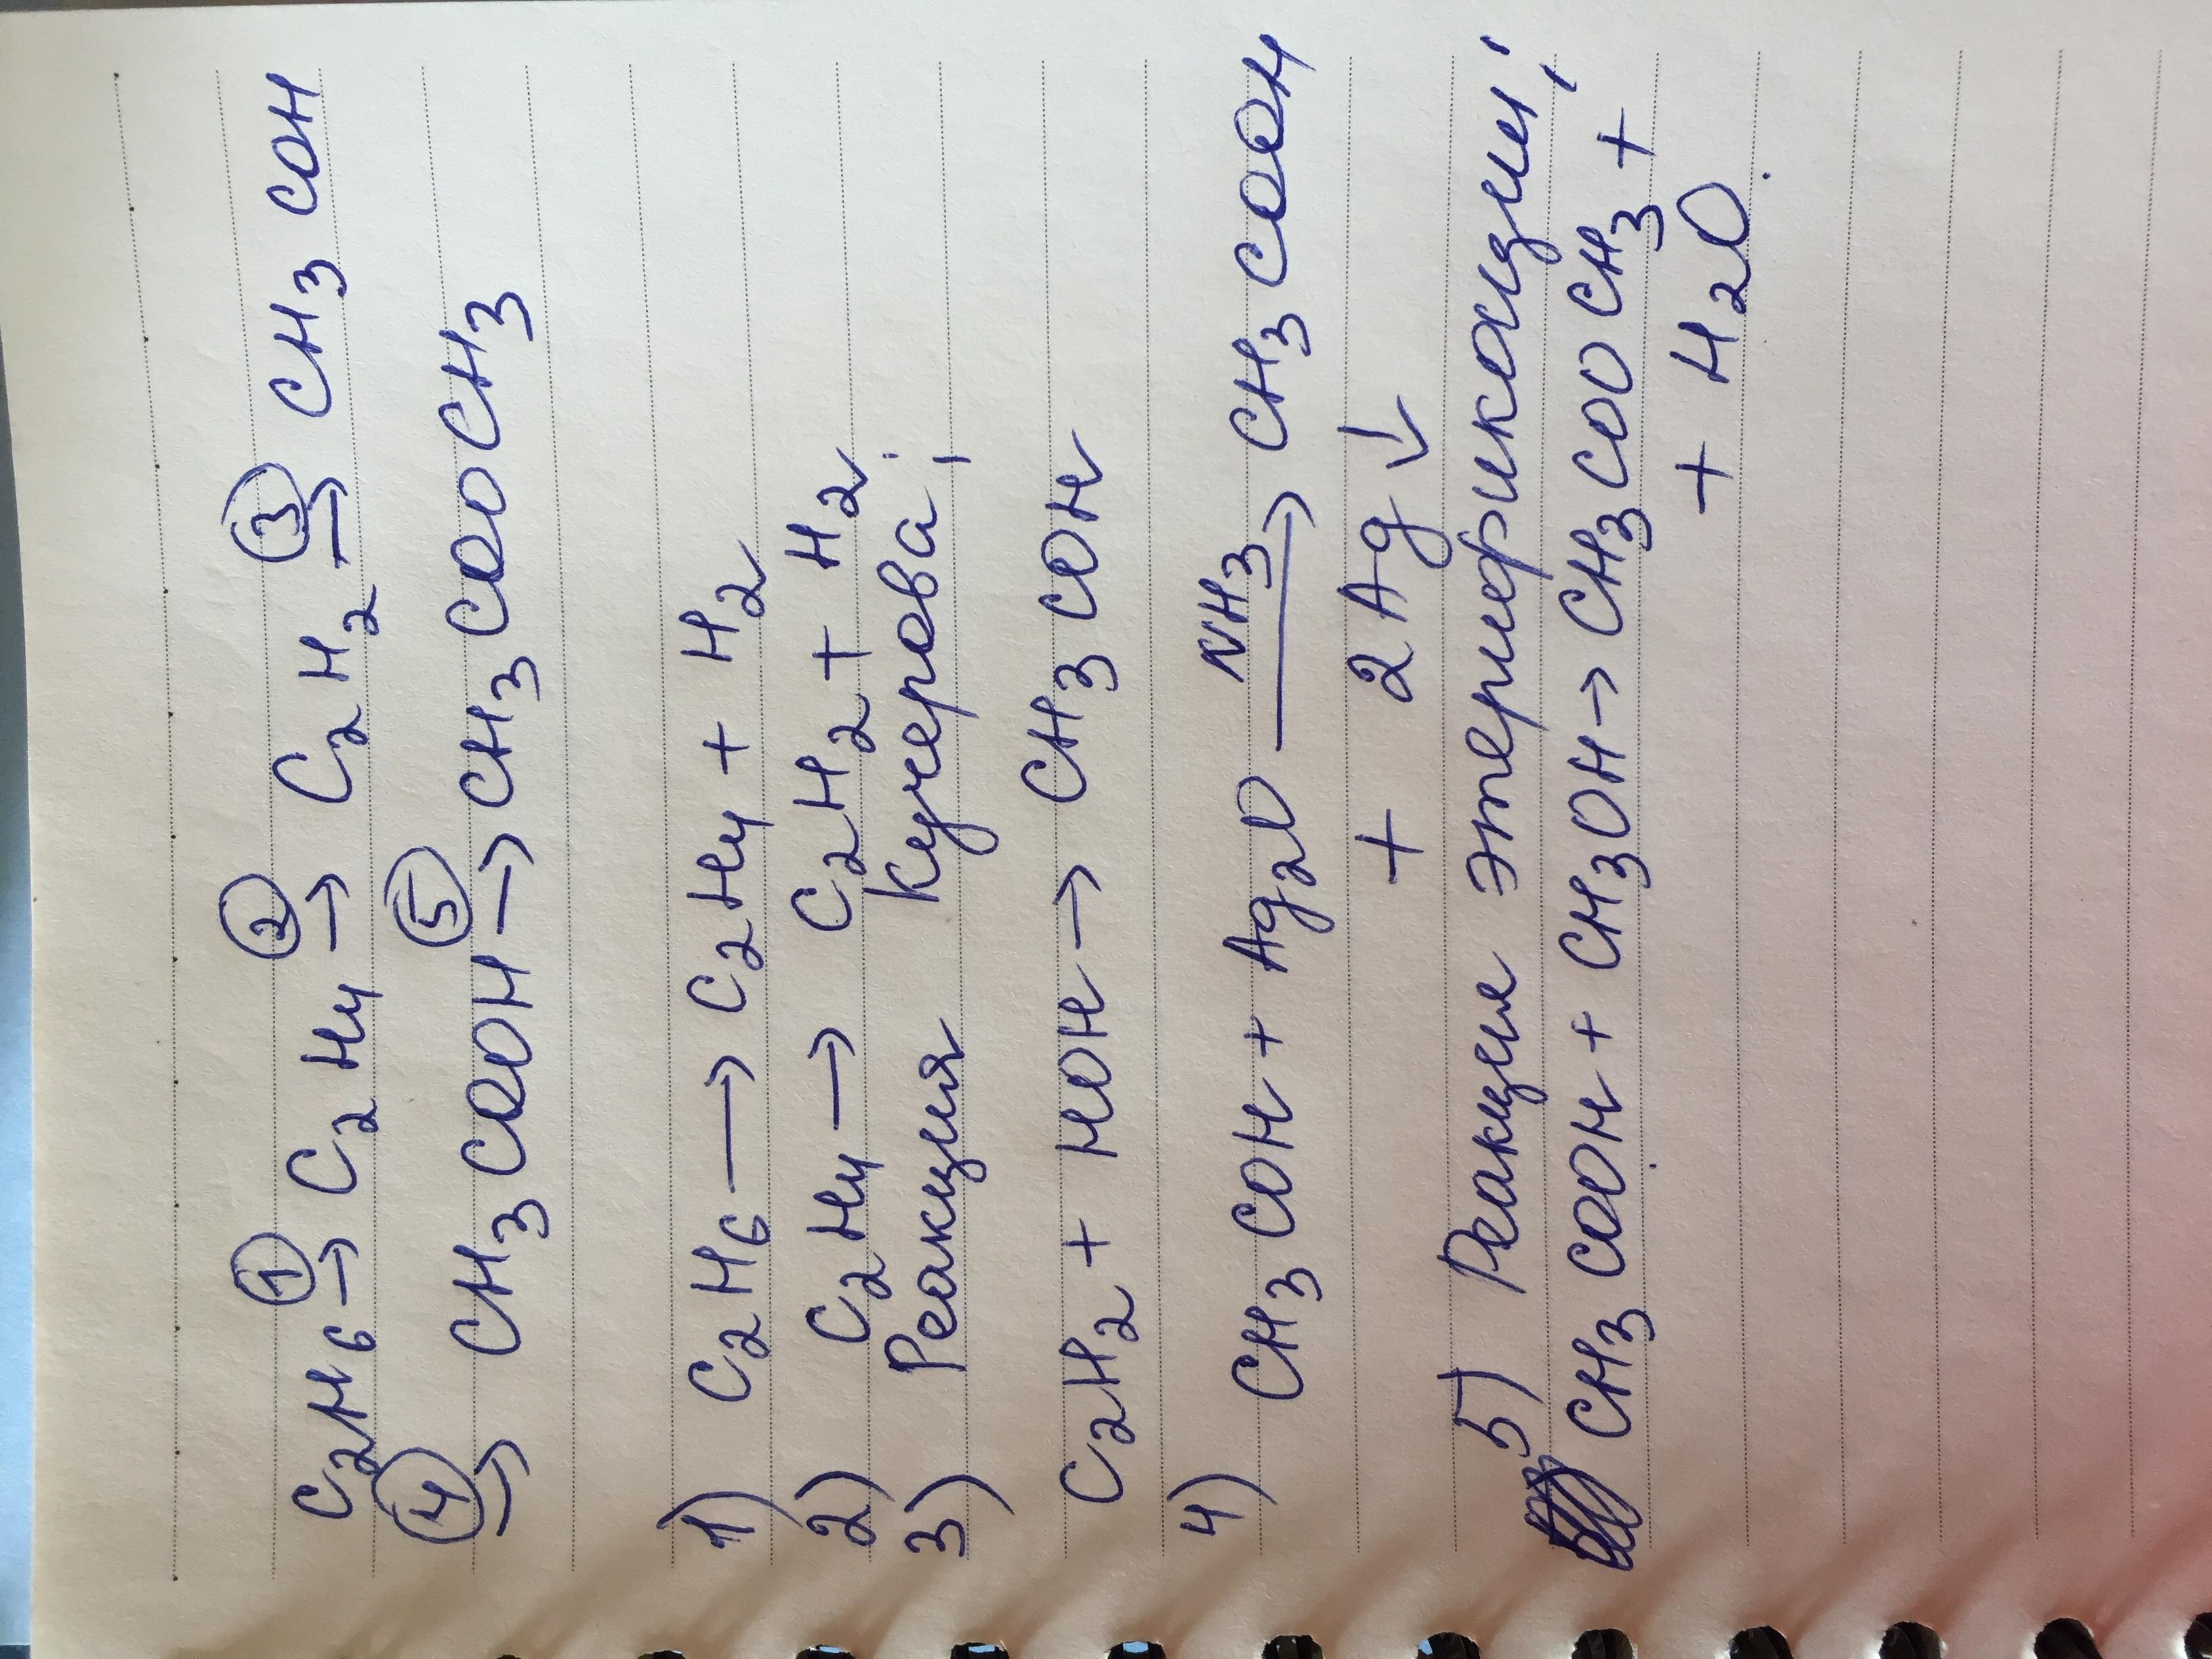 C₂H₆ →① C₂H₄ →② C₂H₂ →③ CH₃COH
→④ CH₃COOH →⑤ CH₃COOCH₃
1) C₂H₆ → C₂H₄ + H₂
2) C₂H₄ → C₂H₂ + H₂
3) Реакция Кучерова:
C₂H₂ + HOH → CH₃COH
4)
CH₃COH + Ag₂O —NH₃→ CH₃COOH
+ 2Ag↓
5) Реакция этерификации:
CH₃COOH + CH₃OH → CH₃COOCH₃ +
+ H₂O.